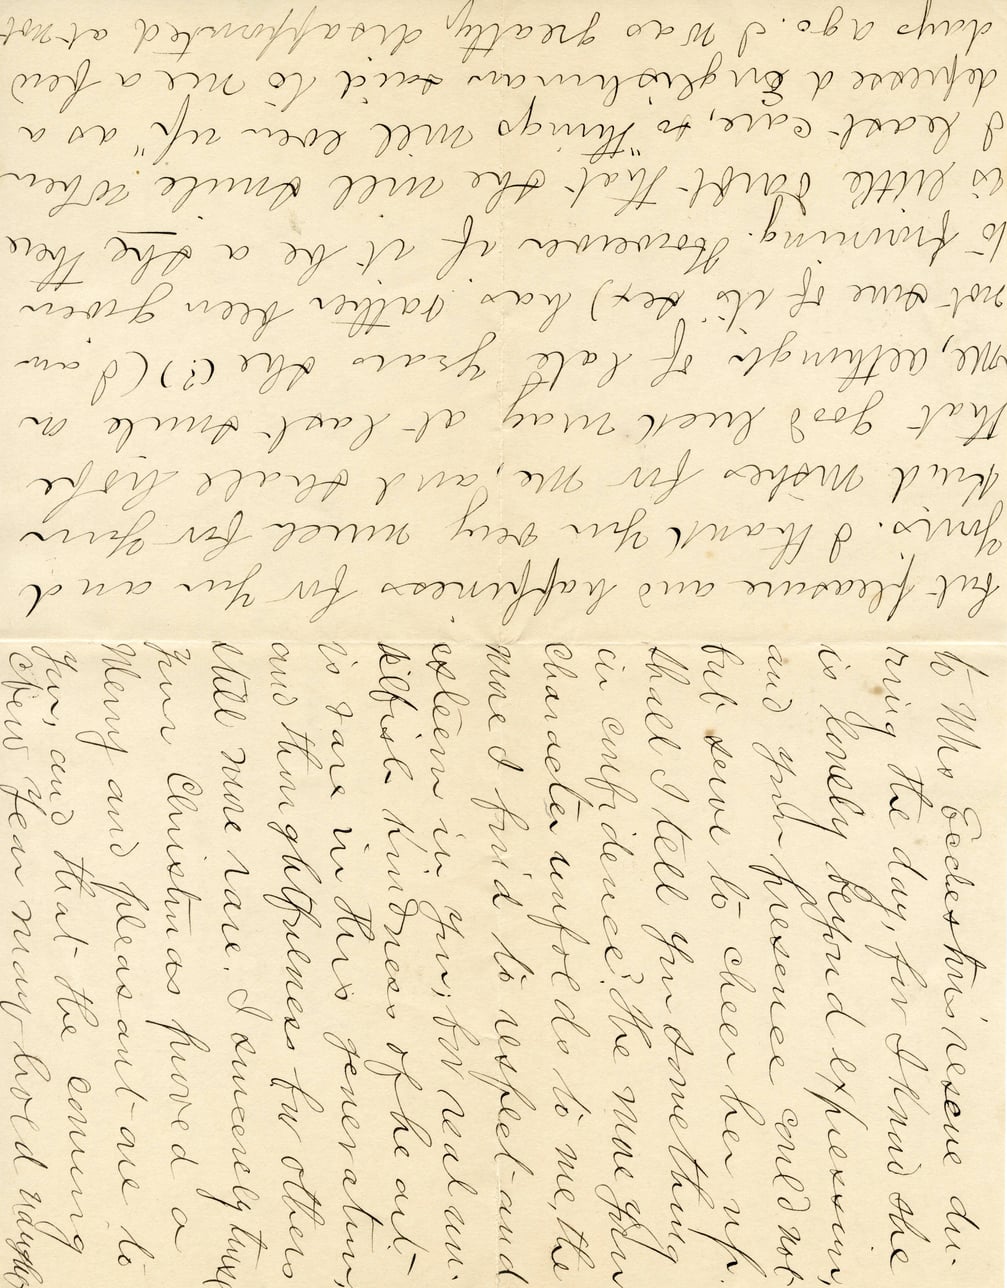 to Mrs Eccleston's rescue du-
ring the day, for I know she
is lonely beyond expression,
and your presence could not
but serve to cheer her up.
Shall I tell you something
in confidence? The more your
character unfolds to me, the
more I find to respect and
esteem in you; for real un-
selfish kindness of heart
is rare in this generation,
and thoughtfulness for others
still more rare. I sincerely trust
your Christmas proved a
Merry and pleasant one to
you, and that the coming
New Year may hold naught
but pleasure and happiness for you and
yours. I thank you very much for your
kind wishes for me, and shall hope
that good luck may at last smile on
me, although of late years she (?) (I am
not sure of its sex) has rather been given
to frowning. However if it be a she there
is little doubt that she will smile when
I least care, so "things will even up" as a
depressed Englishman said to me a few
days ago. I was greatly disappointed at not